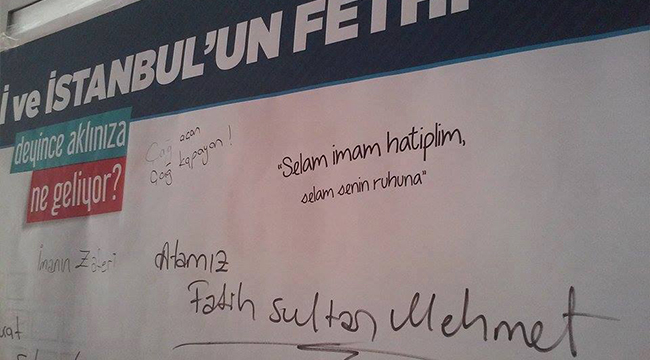 İ ve İSTANBUL'UN FETHİ
deyince aklınıza
ne geliyor?
Çağ açan
çağ kapayan!
"Selam imam hatiplim,
selam senin ruhuna"
İmanın Zaferi
Atamız
Fatih Sultan Mehmet